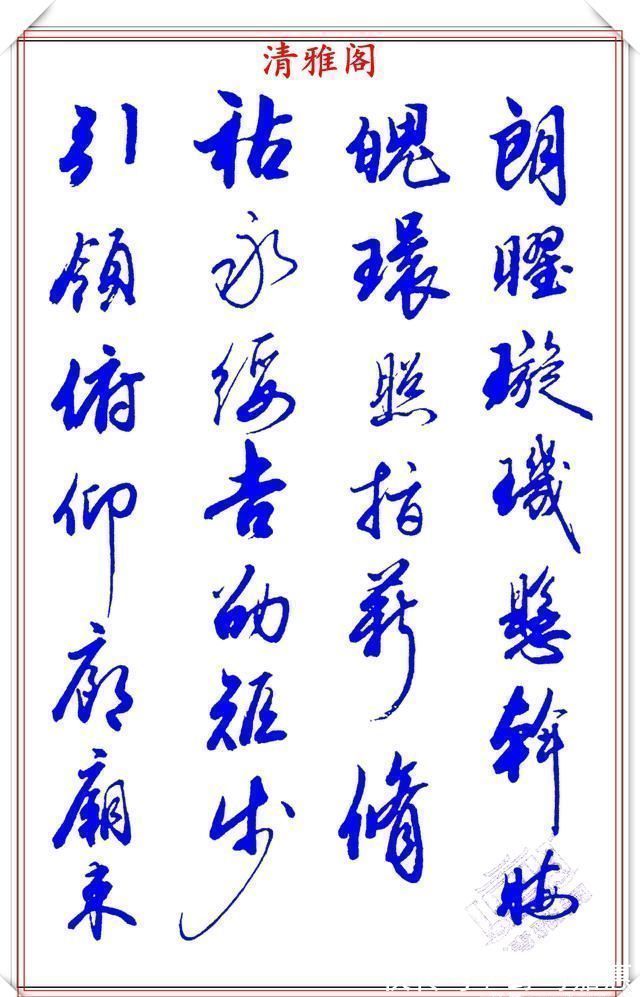 清雅阁
朗曜璇璣懸斡晦
魄環照指薪脩
祜永綏吉劭矩步
引領俯仰廊廟束